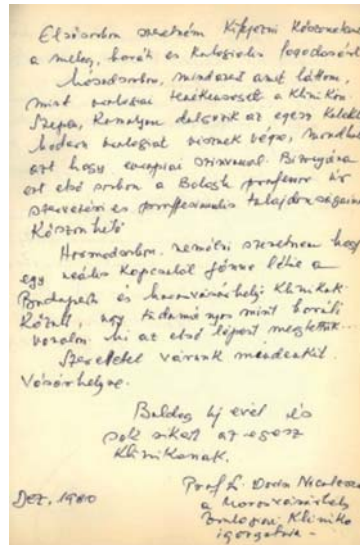 Elsősorban szeretném kifejezni köszönetemet
a meleg, baráti és kollegiális fogadásért
Másodsorban, mindazt amit láttam,
mint urologiai tevékenységet a Klinikán.
Szépen, komolyan dolgozik az egész kolektiva
Modern urologiát visznek végbe, mondhatom
azt hogy europiai szinvonal. Bizonyára
ezt első sorban a Balogh professor úr
szervezési es professionalis tulajdonságainak
Köszönhető
Harmadsorban, remélni szeretném hogy
egy reális kapcsolat jönne létre a
Budapesti és marosvásárhelyi Klinikák
között, úgy tudományos mint baráti
vonalon. Mi az első lépést megtettük...
Szeretettel várunk mindenkit
Vásárhelyre.
Boldog új évet és
sok sikert az egesz
Klinikának.
Prof. Dr. Dorin Nicolescu
a Marosvásárhely
Urologiai Klinika
igazgatója -
DEZ. 1980